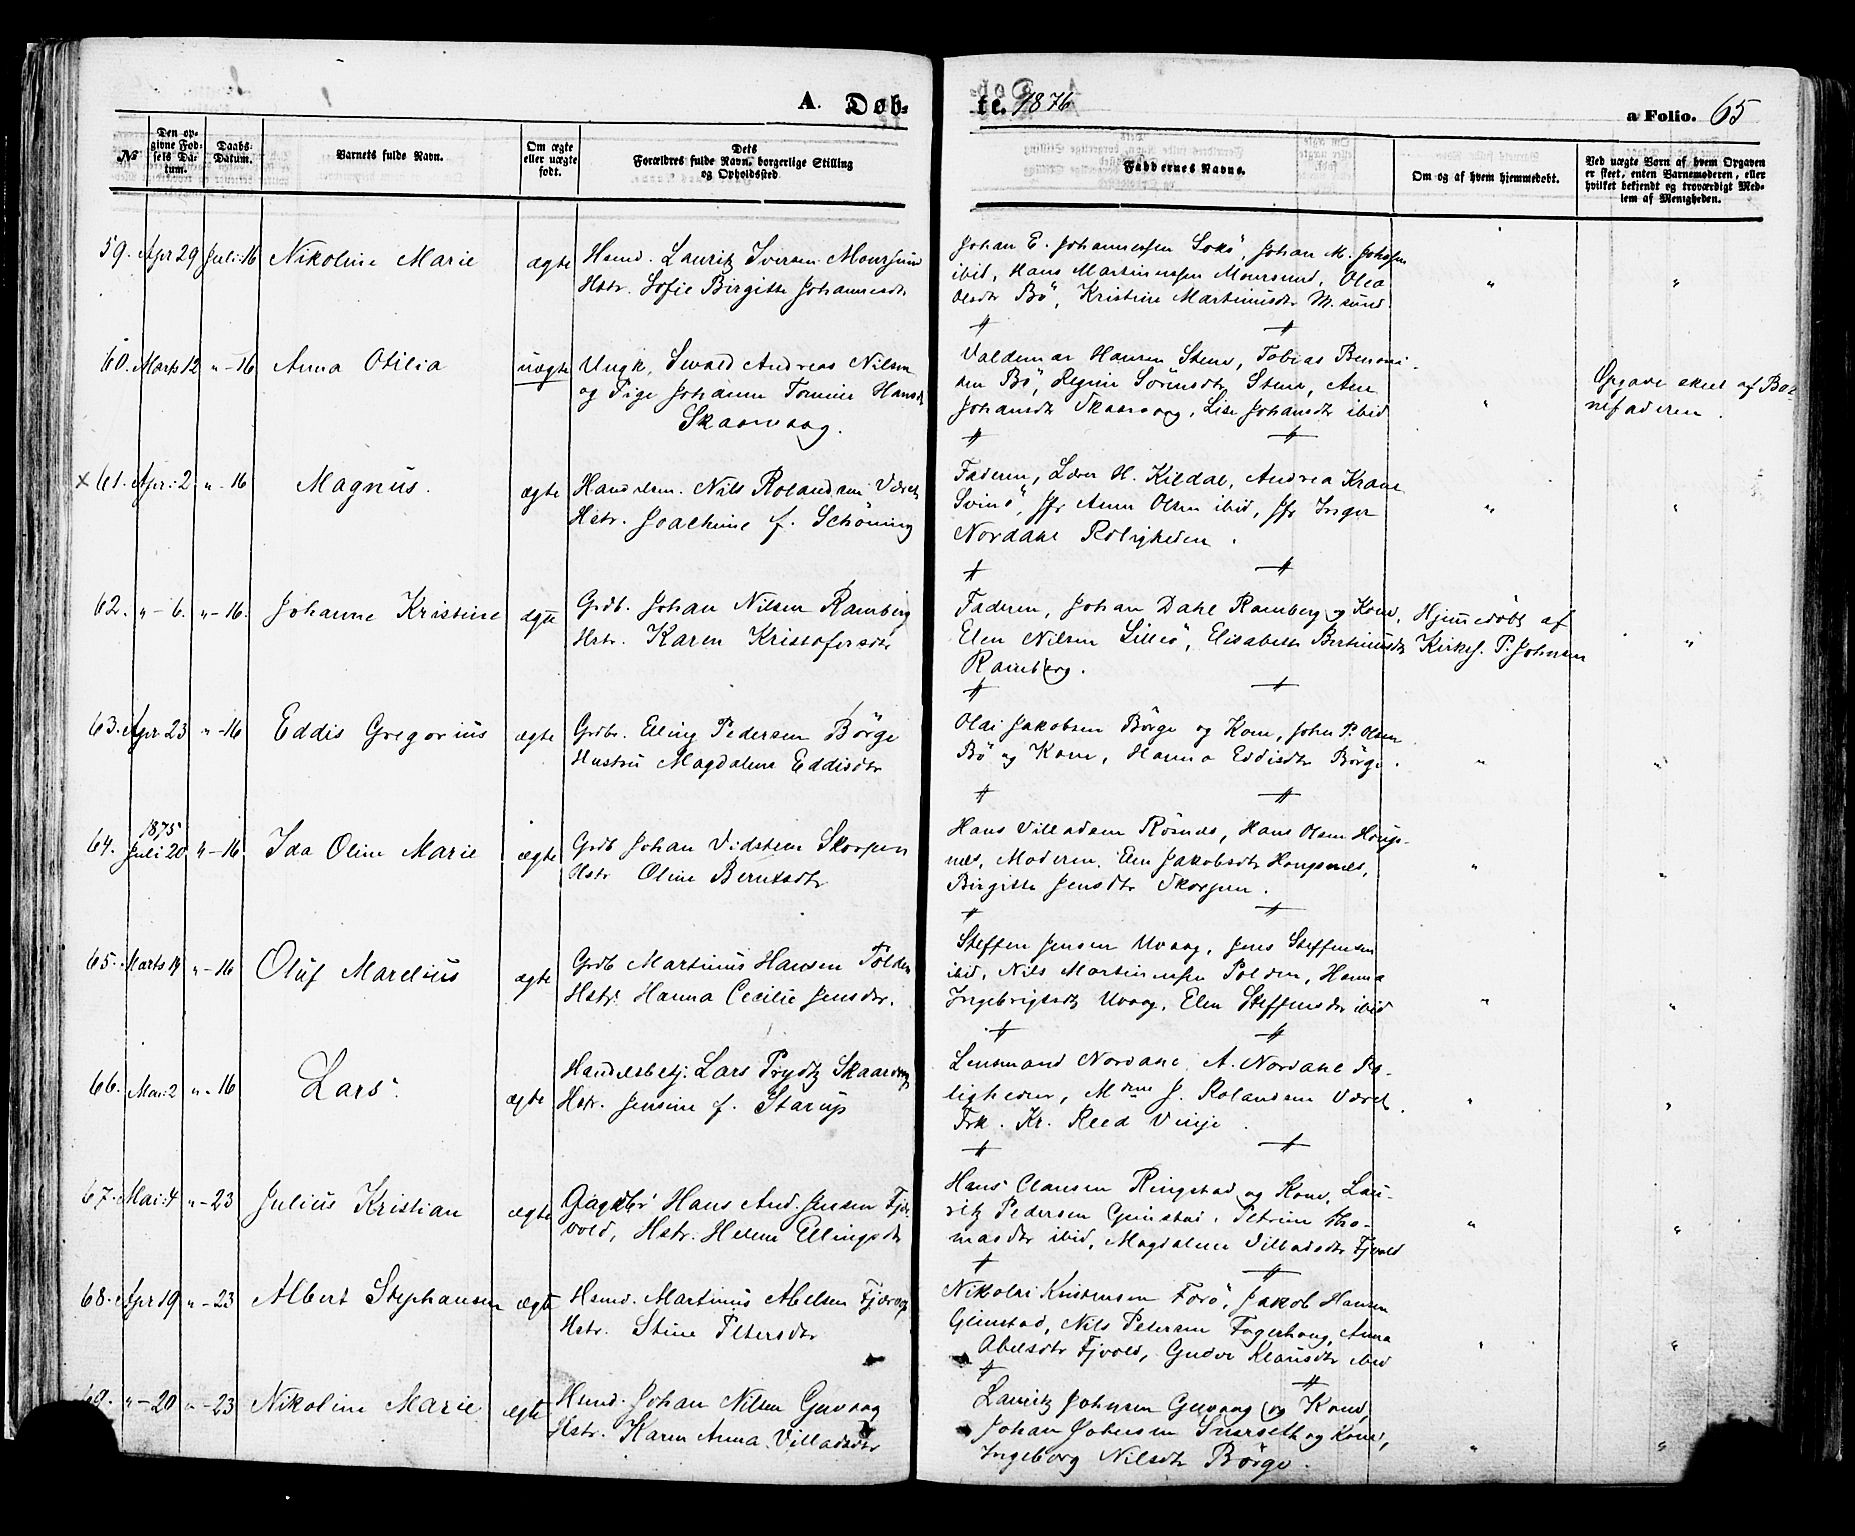 A. Døb-
te. 1876
a Folio. 65
№
Den op-
givne Fød-
sels Da-
tum.
Daabs-
Datum.
Barnets fulde Navn.
Om ægte
eller uægte
født.
Dets
Forældres fulde Navn, borgerlige Stilling
og Opholdssted.
Faddernes Navne.
Om og af hvem hjemmedøbt.
Ved uægte Børn af hvem Opgaven
er skeet, enten Barnemoderen, eller
hvilket bekjendt og troværdigt Med-
lem af Menigheden.
59. Apr 29 Juli 16 Nikoline Marie ægte
Hsmd. Lauritz Iversen Moursund
Hstr. Sofie Birgitte Johannesdtr
Johan E. Johannessen Sokö, Johan M. Johnsen
ibid, Hans Martinussen Moursund, Olea
Olsdtr Bö, Kristine Martinusdtr M.sund.
60. Marts 12 " - 16 Anna Otilia uægte
Ungk. Sevald Andreas Nilsen
og Pige Johanne Tomine Hansdtr
Skaarvaag.
Valdemar Hansen Stene, Tobias Benoni-
sen Bö, Regine Sörensdtr Stene, Ane
Johansdtr Skaarvaag, Lise Johansdtr ibid
Opgave skeet af Bar-
nefaderen.
× 61. Apr: 2 " - 16 Magnus. ægte
Handelsm. Nils Rolandsen Været
Hstr. Joachime f. Schöning
Faderen, Lærer H. Kildal, Andrea Krane
Svinö, Jfr Anne Olsen ibid, Jfr Inger
Nordahl Roligheden.
62. " - 6. " - 16. Johanne Kristine ægte
Grdb. Johan Nilsen Ramberg
Hstr. Karen Kristofersdtr
Faderen, Johan Dahl Ramberg og Kone,
Elen Nilsen Lilleö, Elisabeth Bertinusdtr
Ramberg.
Hjemmedöbt af
Kirkes. P. Johnsen
63. Apr 23 " - 16 Eddis Gregorius ægte
Grdbr. Eling Pedersen Börge
Hustru Magdalena Eddisdtr
Olai Jakobsen Börge og Kone, John P. Olsen
Bö og Kone, Hanna Eddisdtr Börge.
64. 1875 Juli 20 " - 16. Ida Oline Marie ægte
Grdb Johan Vidsteen Skorpen
Hstr Oline Berntsdtr
Hans Villadsen Rösnæs, Hans Olsen Hougs-
næs, Moderen, Elen Jakobsdtr Hougsnæs,
Birgitte Jensdtr Skorpen.
65. Marts 14 " - 16 Oluf Marelius ægte
Grdb Martinus Hansen Polden
Hstr. Hanna Cecilie Jensdtr.
Steffen Jensen Uvaag, Jens Steffensen
ibid, Nils Martinussen Polden, Hanna
Ingebrigtsdtr Uvaag, Elen Steffensdtr ibid
66. Mai: 2 " - 16 Lars. ægte
Handelsbetj. Lars Prydtz Skaarvaag
Hstr. Jensine f. Starup
Lensmand Nordahl, A. Nordahl Ro-
ligheden, Mdme J. Rolandsen Været,
Frk. Kr. Reed Vinje.
67. Mai: 4 " - 23 Julius Kristian ægte
Hans And. Jensen Fjær-
vold, Hstr. Helene Elingsdtr
Hans Clausen Ringstad og Kone, Lau-
ritz Pedersen Grimstad, Petrine Tho-
masdtr ibid, Magdalena Villadsdtr Fjvold
68. Apr 19 " - 23 Albert Stephansen ægte
Hsmd. Martinus Abelsen Fjærvoll
Hstr. Stine Petersdtr
Nikolai Kristensen Forö, Jakob Hansen
Grimstad, Nils Petersen Fagerhaug, Anna
Abelsdtr Fjvold, Gudve Klausdtr ibid
69. " - 20 " - 23 Nikoline Marie ægte
Hsmd. Johan Nilsen Guvaag
Hstr. Karen Anna Villadsdtr
Lauritz Johnsen Guvaag og Kone,
Johan Johnsen og Kone,
Ingeborg Nilsdtr Börge.